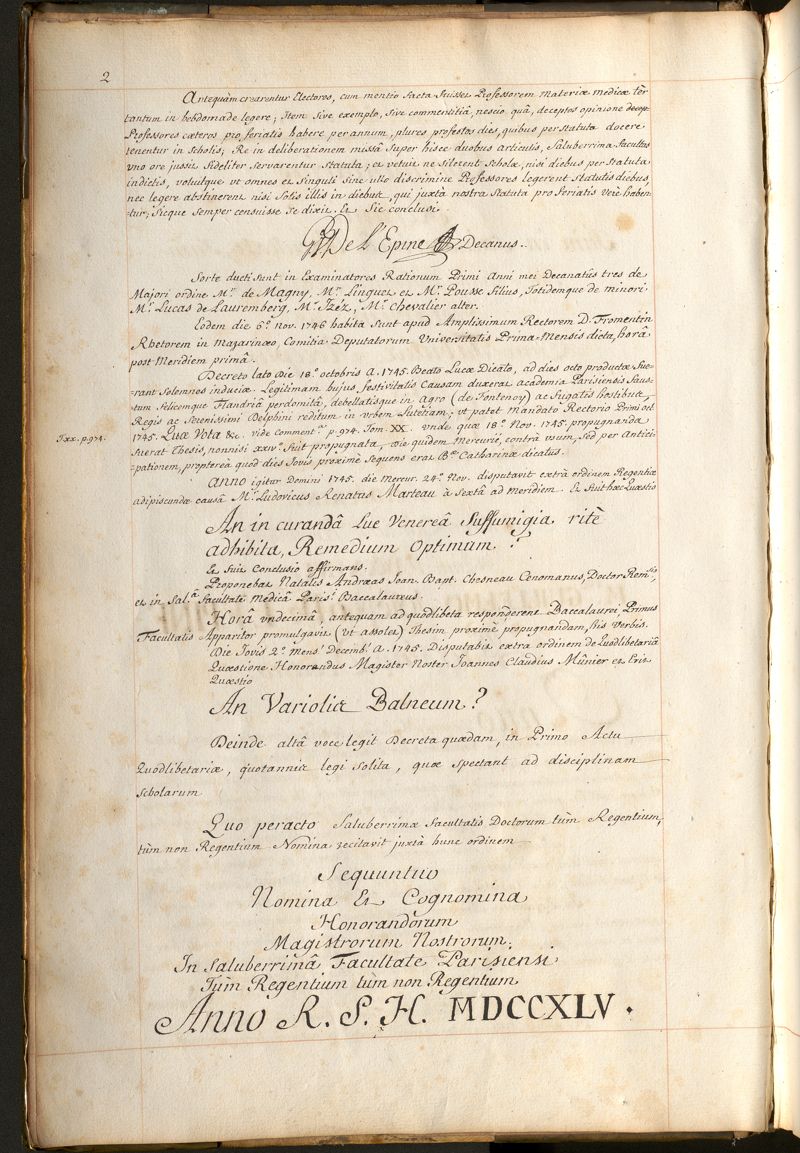 2
Antequàm crearentur Electores, cum mentio facta fuisset Professorem materiæ medicæ tèr
tantum in hebdomade legere; Item sive exemplo, sive commentitiâ, nescio quâ, deceptos opinione
Professores cæteros pro feriatio habere per annum, plures profestos dies, quibus per statuta docere
tenentur in Scholis; Re in deliberationem missâ super hisce duobus articulis, saluberrima facultas
vno ore jussit fideliter servarentur Statuta; et vetuit ne silerent Scholæ, nisi diebus per Statuta
indictis, voluitque vt omnes et singuli sine ullo discrimine Professores legerent statutis diebus,
nec legere abstinerent nisi solis illis in diebus, qui juxtà nostra Statuta pro feriatis verè haben-
tur; sicque semper censuisse se dixit. Et Sic conclusi.
De L'Epine Decanus.
Sorte ducti sunt in Examinatores Rationum Primi Anni mei Decanatûs tres de
Majori ordine Mr. de Magny, Mr. Linguet et Mr. Pousse filius, Totidemque de minori.
Mr. Lucas de Lauremberg, Mr. Izéz, Mr. Chevalier alter.
Eodem die 6º. nov. 1746 habita sunt apud Amplissimum Rectorem D. Fromentin
Rhetorem in mazarinæo Comitia Deputatorum Vniversitatis Prima Mensis dicta, horâ
post Meridiem primâ.
Decreto lato die 18º. octobris A. 1745. Beato Lucæ Dicato, ad dies octo productæ fue-
rant solemnes induciæ. Legitimam hujus festivitatis Causam duxerat academia Parisiensis faus-
tum felicemque Flandriâ perdomitâ, debellatisque in agro (de Fontenoy) ac fugatis hostibus,
Regis ac Serenissimi Delphini reditum in vrbem Lutetiam; vt patet mandato Rectorio Primi oct.
1745. Quæ Vota &c. vide comment. p. 974. Tom. XX. vnde quæ 18º. Nov. 1745. propugnanda
Txx. p. 974.
fuerat Thesis, nonnisi xxivº. fuit propugnata, die quidem Mercurii, contrà vsum, sed per Antici-
pationem, proptereà quod dies Jovis proximè sequens erat Bæ. Catharinæ dicatus.
Anno igitur Domini 1745. die Mercur. 24º. Nov. disputavit extrà ordinem Regentiæ
adipiscundæ causâ Mr. Ludovicus Renatus Marteau à Sextâ ad meridiem. Et fuit hæc Quæstio
An in curandâ Lue Venereâ Suffumigia ritè
adhibita, Remedium Optimum?
Et fuit Conclusio affirmans.
Proponebat Natalis Andræas Ioan. Bapt. Chesneau Cenomanus, Doctor Remsis,
et in Sal.â facultate medicâ Paris. Baccalaureus.
Horâ vndecimâ, antequam ad quodlibeta responderent Baccalaurei, Primus
Facultatis Apparitor promulgavit (vt assolet) Thesim proximè propugnandam, his verbis.
Die Jovis 2º. mens. Decemb. A. 1745. Disputabit extra ordinem de Quodlibetariâ
Quæstione Honorandus Magister Noster Ioannes Claudius Mûnier et Erit
Quæstio
An Variolis Balneum?
Deinde altâ voce legit Decreta quædam, in Primo Actu
Quodlibetario, quotannis legi solita, quæ spectant ad disciplinam
scholarum
Quo peracto Saluberrimæ facultatis Doctorum tùm Regentium,
tùm non Regentium Nomina recitavit juxtà hunc ordinem
Sequuntur
Nomina Et Cognomina
Honorandorum
Magistrorum Nostrorum,
In Saluberrimâ Facultate Parisiensi
Tùm Regentium tùm non Regentium
Anno R. S. H. MDCCXLV.